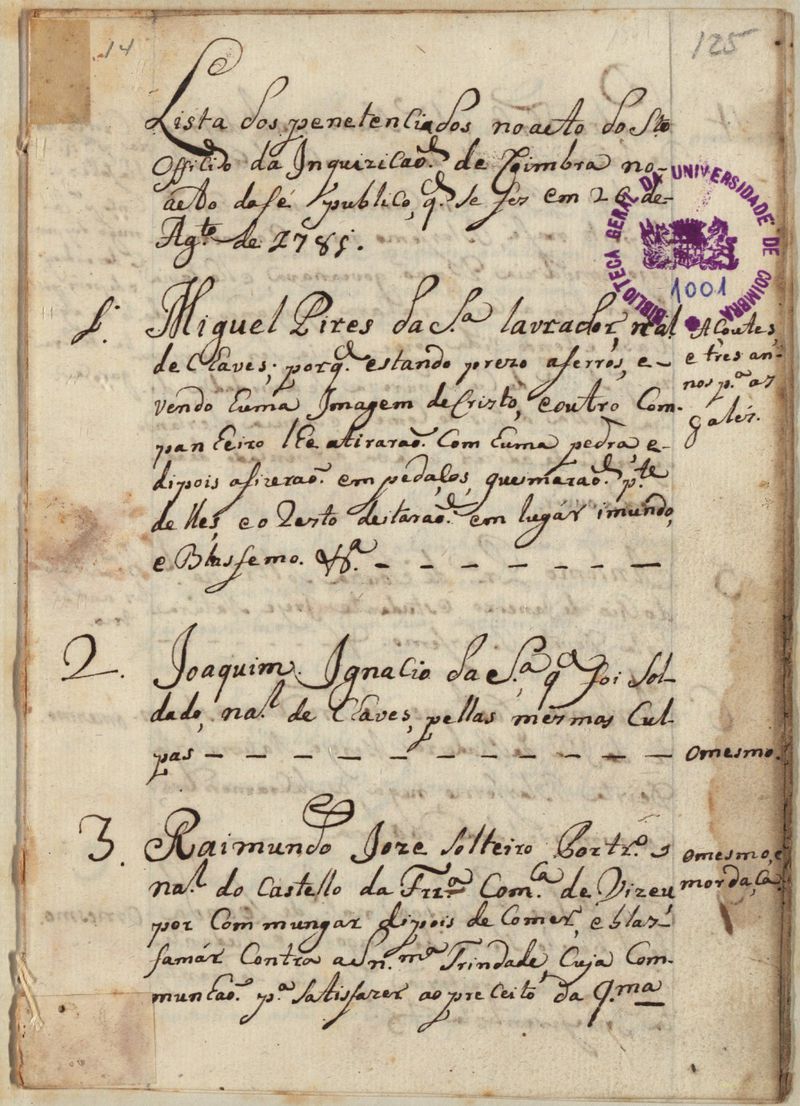 14
125
Lista dos penetenciados no acto do S.to
Officio da Inquizicaõ de Coimbra no
acto da fé publico, q. se fez em 26 de
Ag.to de 1785.
BIBLIOTECA GERAL DA UNIVERSIDADE DE COIMBRA
1001
1. Miguel Pires da S.a lavrador, n.al
de Chaves; porq. estando prezo a ferros, e
vendo huma Imagem de Cristo, e outro Com-
panheiro lhe atiraraõ. Com huma pedra, e
dipois a fizeraõ. em pedaços, queimaraõ. p.te
delles, e o Resto deitaraõ. em lugár imundo,
e Blasfemo. &.a
Acoutes,
e tres an-
nos p.a as
galés.
2. Joaquim Ignacio da S.a q. foi Sol-
dado, na.l de Chaves, pellas mesmas Cul-
pas
o mesmo.
3. Raimundo Joze solteiro
na.l do Castello da Frr.a Com.ca de Vizeu
por Commungar dipois de Comer, e blas-
famár Contra a Sn.ma Trindade, Cuja Com-
munhaõ. p.a satisfazer ao preceito da Q.ma
o mesmo, e
mordaça